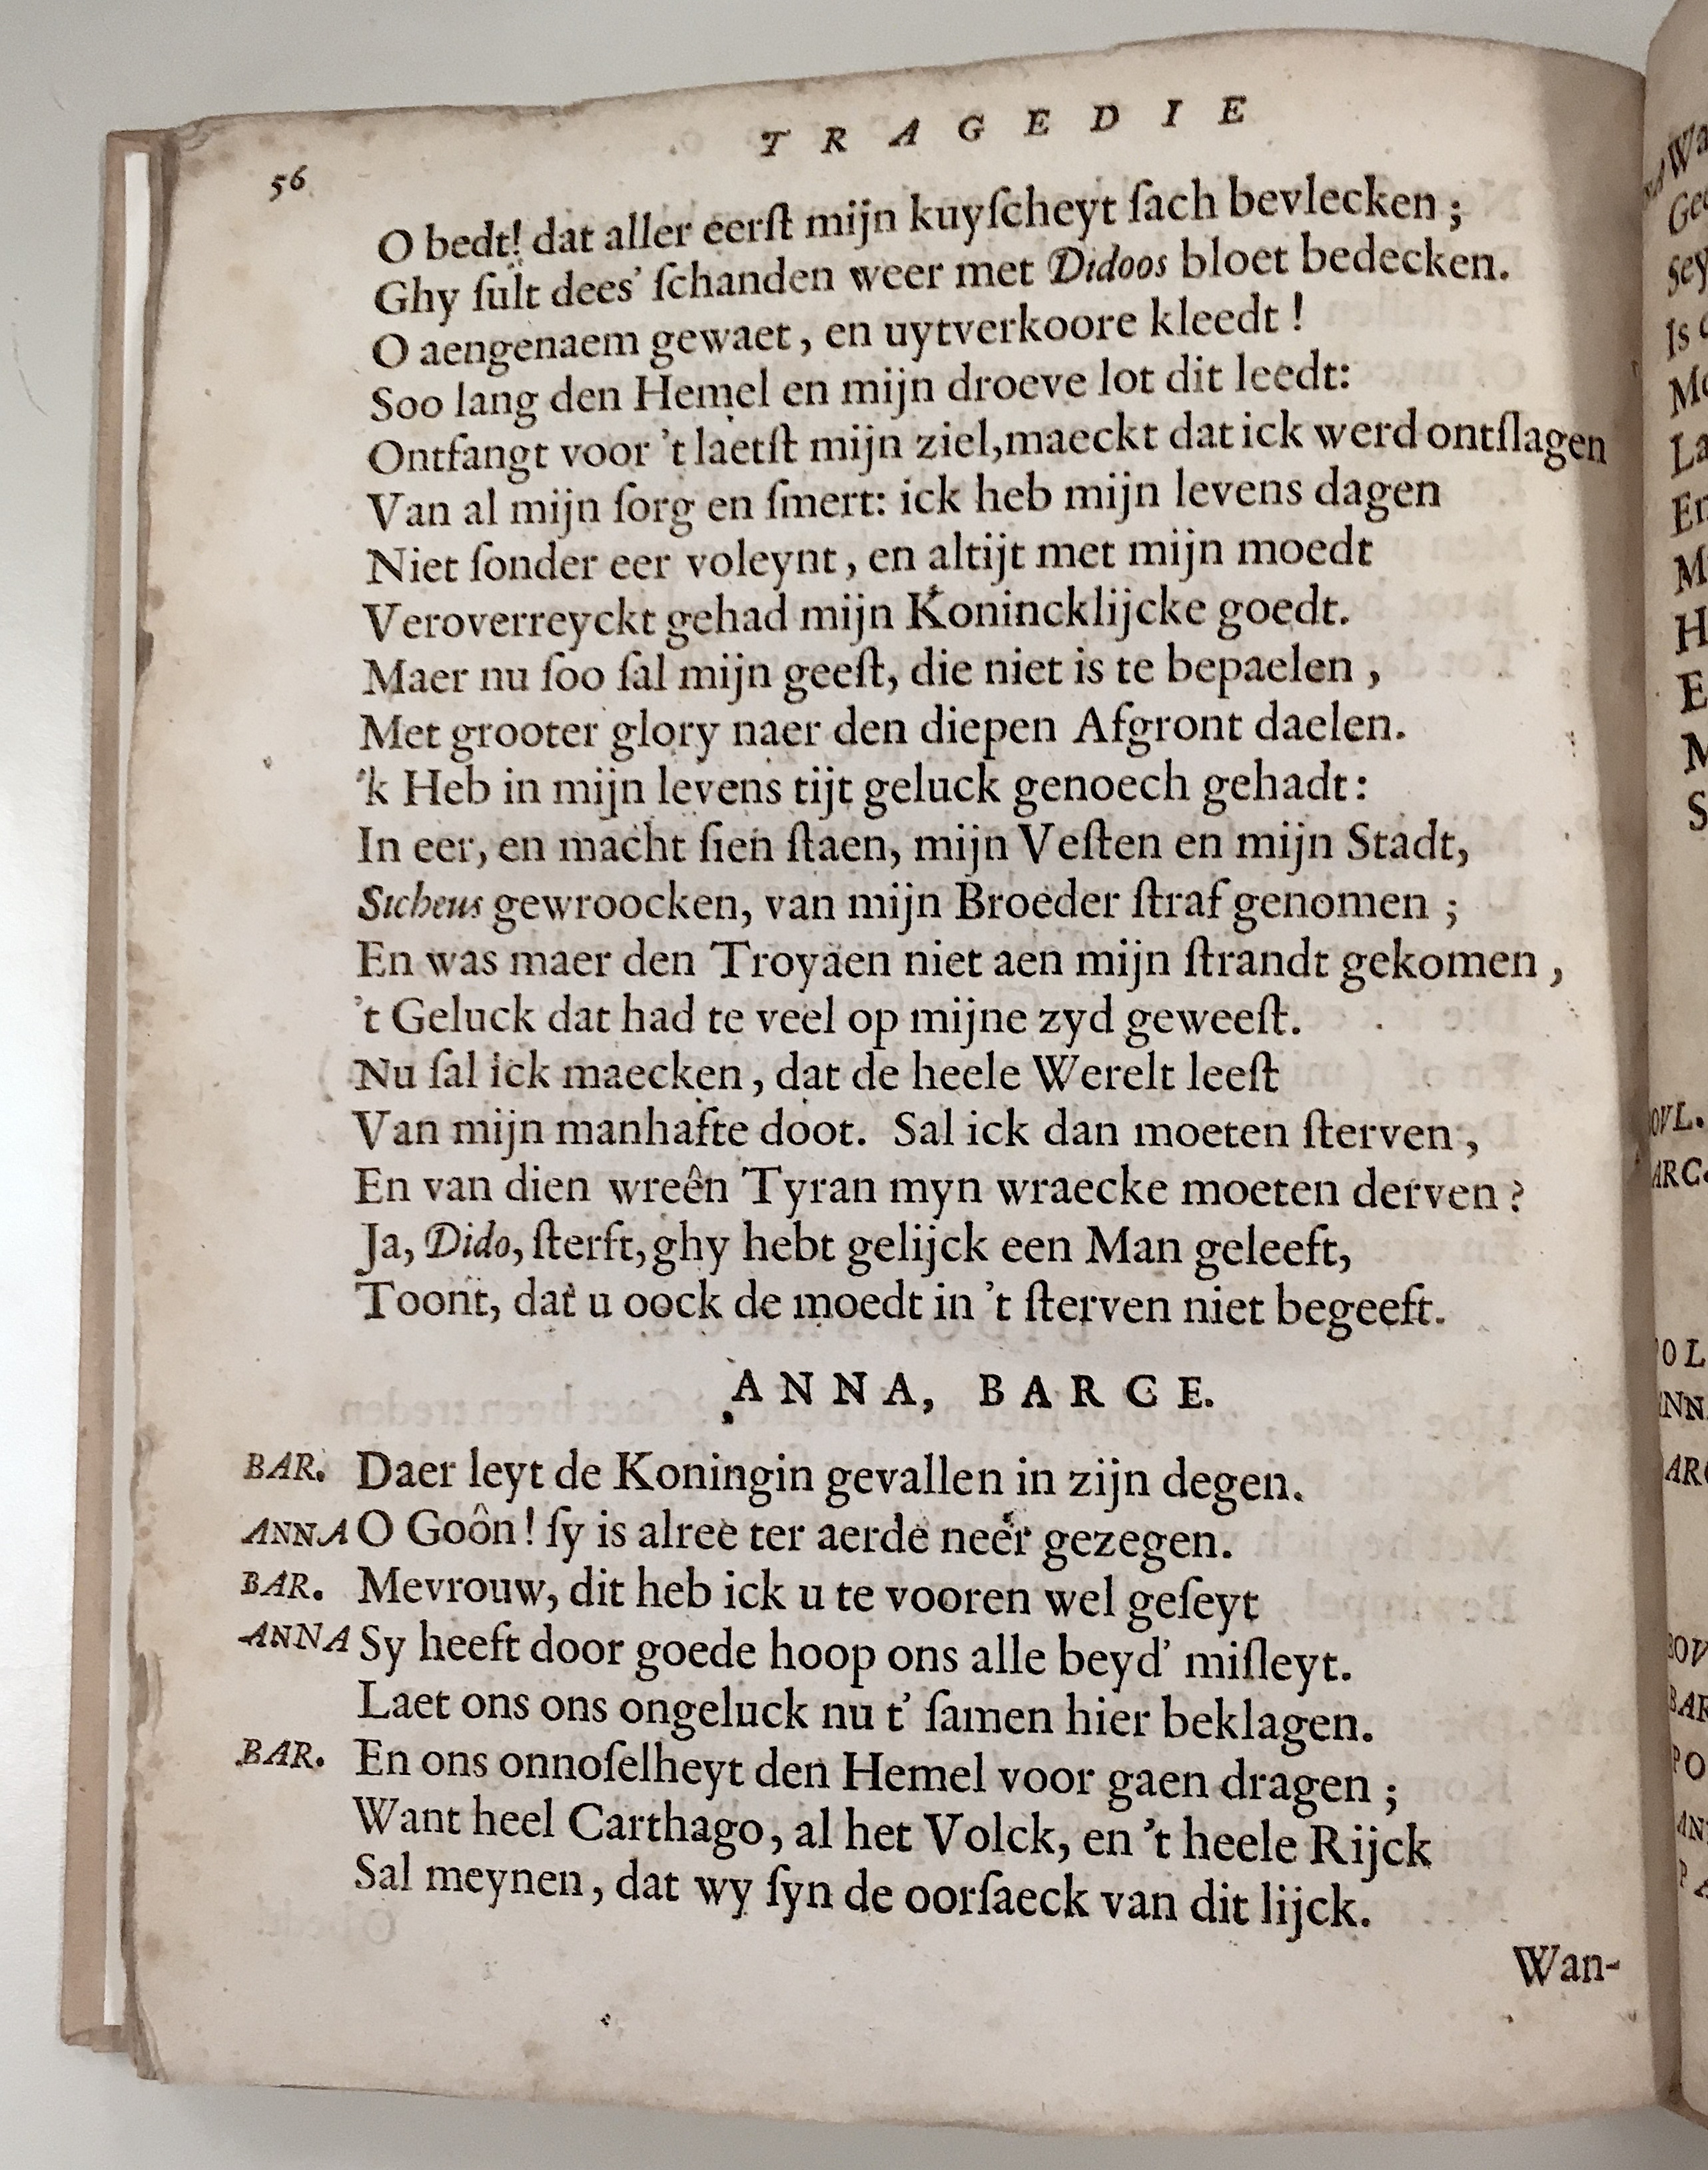 TRAGEDIE
56
O bedt! dat aller eerſt mijn kuyſcheyt ſach bevlecken;
Ghy ſult dees' ſchanden weer met Didoos bloet bedecken.
O aengenaem gewaet, en uytverkoore kleedt!
Soo lang den Hemel en mijn droeve lot dit leedt:
Ontfangt voor 't laetſt mijn ziel, maeckt dat ick werd ontſlagen
Van al mijn ſorg en ſmert: ick heb mijn levens dagen
Niet ſonder eer voleynt, en altijt met mijn moedt
Veroverreyckt gehad mijn Konincklijcke goedt.
Maer nu ſoo ſal mijn geeſt, die niet is te bepaelen,
Met grooter glory naer den diepen Afgront daelen.
'k Heb in mijn levens tijt geluck genoech gehadt:
In eer, en macht ſien ſtaen, mijn Veſten en mijn Stadt,
Sicheus gewroocken, van mijn Broeder ſtraf genomen;
En was maer den Troyaen niet aen mijn ſtrandt gekomen,
't Geluck dat had te veel op mijne zyd geweeſt.
Nu ſal ick maecken, dat de heele Werelt leeſt
Van mijn manhafte doot. Sal ick dan moeten ſterven,
En van dien wreên Tyran myn wraecke moeten derven?
Ja, Dido, ſterft, ghy hebt gelijck een Man geleeft,
Toont, dat u oock de moedt in 't ſterven niet begeeft.
ANNA, BARCE.
BAR. Daer leyt de Koningin gevallen in zijn degen.
ANNA O Goôn! ſy is alree ter aerde neer gezegen.
BAR. Mevrouw, dit heb ick u te vooren wel geſeyt
ANNA Sy heeft door goede hoop ons alle beyd' miſleyt.
Laet ons ons ongeluck nu t' ſamen hier beklagen.
BAR. En ons onnoſelheyt den Hemel voor gaen dragen;
Want heel Carthago, al het Volck, en 't heele Rijck
Sal meynen, dat wy ſyn de oorſaeck van dit lijck.
Wan-